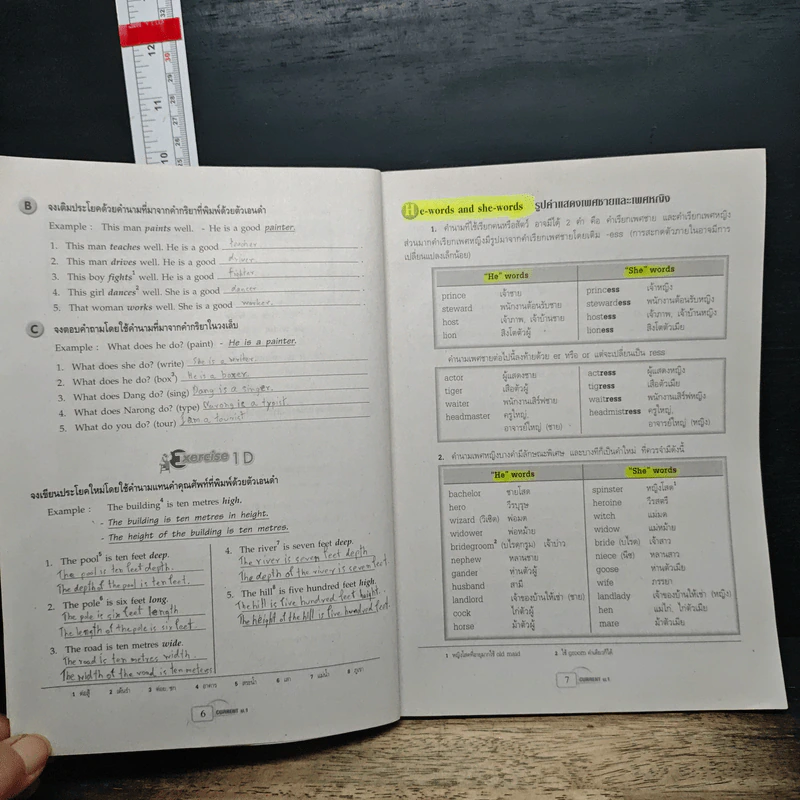 B จงเติมประโยคด้วยคำนามที่มาจากคำกริยาที่พิมพ์ด้วยตัวเอนดำ
Example : This man paints well. - He is a good painter.
1. This man teaches well. He is a good teacher
2. This man drives well. He is a good driver
3. This boy fights¹ well. He is a good fighter
4. This girl dances² well. She is a good dancer
5. That woman works well. She is a good worker.
C จงตอบคำถามโดยใช้คำนามที่มาจากคำกริยาในวงเล็บ
Example : What does he do? (paint) - He is a painter.
1. What does she do? (write) She is a writer.
2. What does he do? (box³) He is a boxer.
3. What does Dang do? (sing) Dang is a singer.
4. What does Narong do? (type) Narong is a typist
5. What do you do? (tour) I am a tourist
Exercise 1D
จงเขียนประโยคใหม่โดยใช้คำนามแทนคำคุณศัพท์ที่พิมพ์ด้วยตัวเอนดำ
Example : The building⁴ is ten metres high.
- The building is ten metres in height.
- The height of the building is ten metres.
1. The pool⁵ is ten feet deep.
The pool is ten feet depth.
The depth of the pool is ten feet.
2. The pole⁶ is six feet long.
The pole is six feet length
The length of the pole is six feet
3. The road is ten metres wide.
The road is ten metres width.
The width of the road is ten metres
4. The river⁷ is seven feet deep.
The river is seven feet depth
The depth of the river is seven feet.
5. The hill⁸ is five hundred feet high.
The hill is five hundred feet height.
The height of the hill is five hundred feet.
1 ต่อสู้ 2 เต้นรำ 3 ต่อย, ชก 4 อาคาร 5 สระน้ำ 6 เสา 7 แม่น้ำ 8 ภูเขา
6 CURRENT ม.1
He-words and she-words รูปคำแสดงเพศชายและเพศหญิง
1. คำนามที่ใช้เรียกคนหรือสัตว์ อาจมีได้ 2 คำ คือ คำเรียกเพศชาย และคำเรียกเพศหญิง
ส่วนมากคำเรียกเพศหญิงมีรูปมาจากคำเรียกเพศชายโดยเติม -ess (การสะกดตัวภายในอาจมีการ
เปลี่ยนแปลงเล็กน้อย)
"He" words "She" words
prince เจ้าชาย princess เจ้าหญิง
steward พนักงานต้อนรับชาย stewardess พนักงานต้อนรับหญิง
host เจ้าภาพ, เจ้าบ้านชาย hostess เจ้าภาพ, เจ้าบ้านหญิง
lion สิงโตตัวผู้ lioness สิงโตตัวเมีย
คำนามเพศชายต่อไปนี้ลงท้ายด้วย er หรือ or แต่จะเปลี่ยนเป็น ress
actor ผู้แสดงชาย actress ผู้แสดงหญิง
tiger เสือตัวผู้ tigress เสือตัวเมีย
waiter พนักงานเสิร์ฟชาย waitress พนักงานเสิร์ฟหญิง
headmaster ครูใหญ่, headmistress ครูใหญ่,
อาจารย์ใหญ่ (ชาย) อาจารย์ใหญ่ (หญิง)
2. คำนามเพศหญิงบางคำมีลักษณะพิเศษ และบางทีก็เป็นคำใหม่ ที่ควรจำมีดังนี้
"He" words "She" words
bachelor ชายโสด spinster หญิงโสด¹
hero วีรบุรุษ heroine วีรสตรี
wizard (วิเซิด) พ่อมด witch แม่มด
widower พ่อหม้าย widow แม่หม้าย
bridegroom² (ไบรดกรูม) เจ้าบ่าว bride (ไบรด) เจ้าสาว
nephew หลานชาย niece (นีซ) หลานสาว
gander ห่านตัวผู้ goose ห่านตัวเมีย
husband สามี wife ภรรยา
landlord เจ้าของบ้านให้เช่า (ชาย) landlady เจ้าของบ้านให้เช่า (หญิง)
cock ไก่ตัวผู้ hen แม่ไก่, ไก่ตัวเมีย
horse ม้าตัวผู้ mare ม้าตัวเมีย
1 หญิงโสดที่อายุมากใช้ old maid 2 ใช้ groom คำเดียวก็ได้
7 CURRENT ม.1
12
11
10